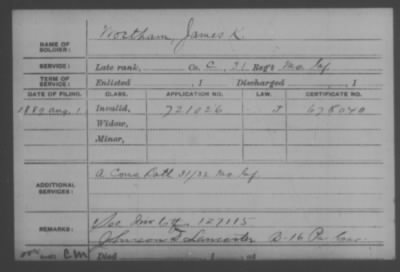 NAME OF SOLDIER: Wortham, James K.
SERVICE: Late rank, Co. C, 31 Reg't Mo. Inf.
TERM OF SERVICE: Enlisted , 1 Discharged , 1
DATE OF FILING. CLASS. APPLICATION NO. LAW. CERTIFICATE NO.
1889 Aug. 1 Invalid, 721026 J 678040
Widow,
Minor,
ADDITIONAL SERVICES: A Cons Batt 31/32 Mo. Inf.
REMARKS: 127115
Johnson T. Lancaster B-16
cm Died